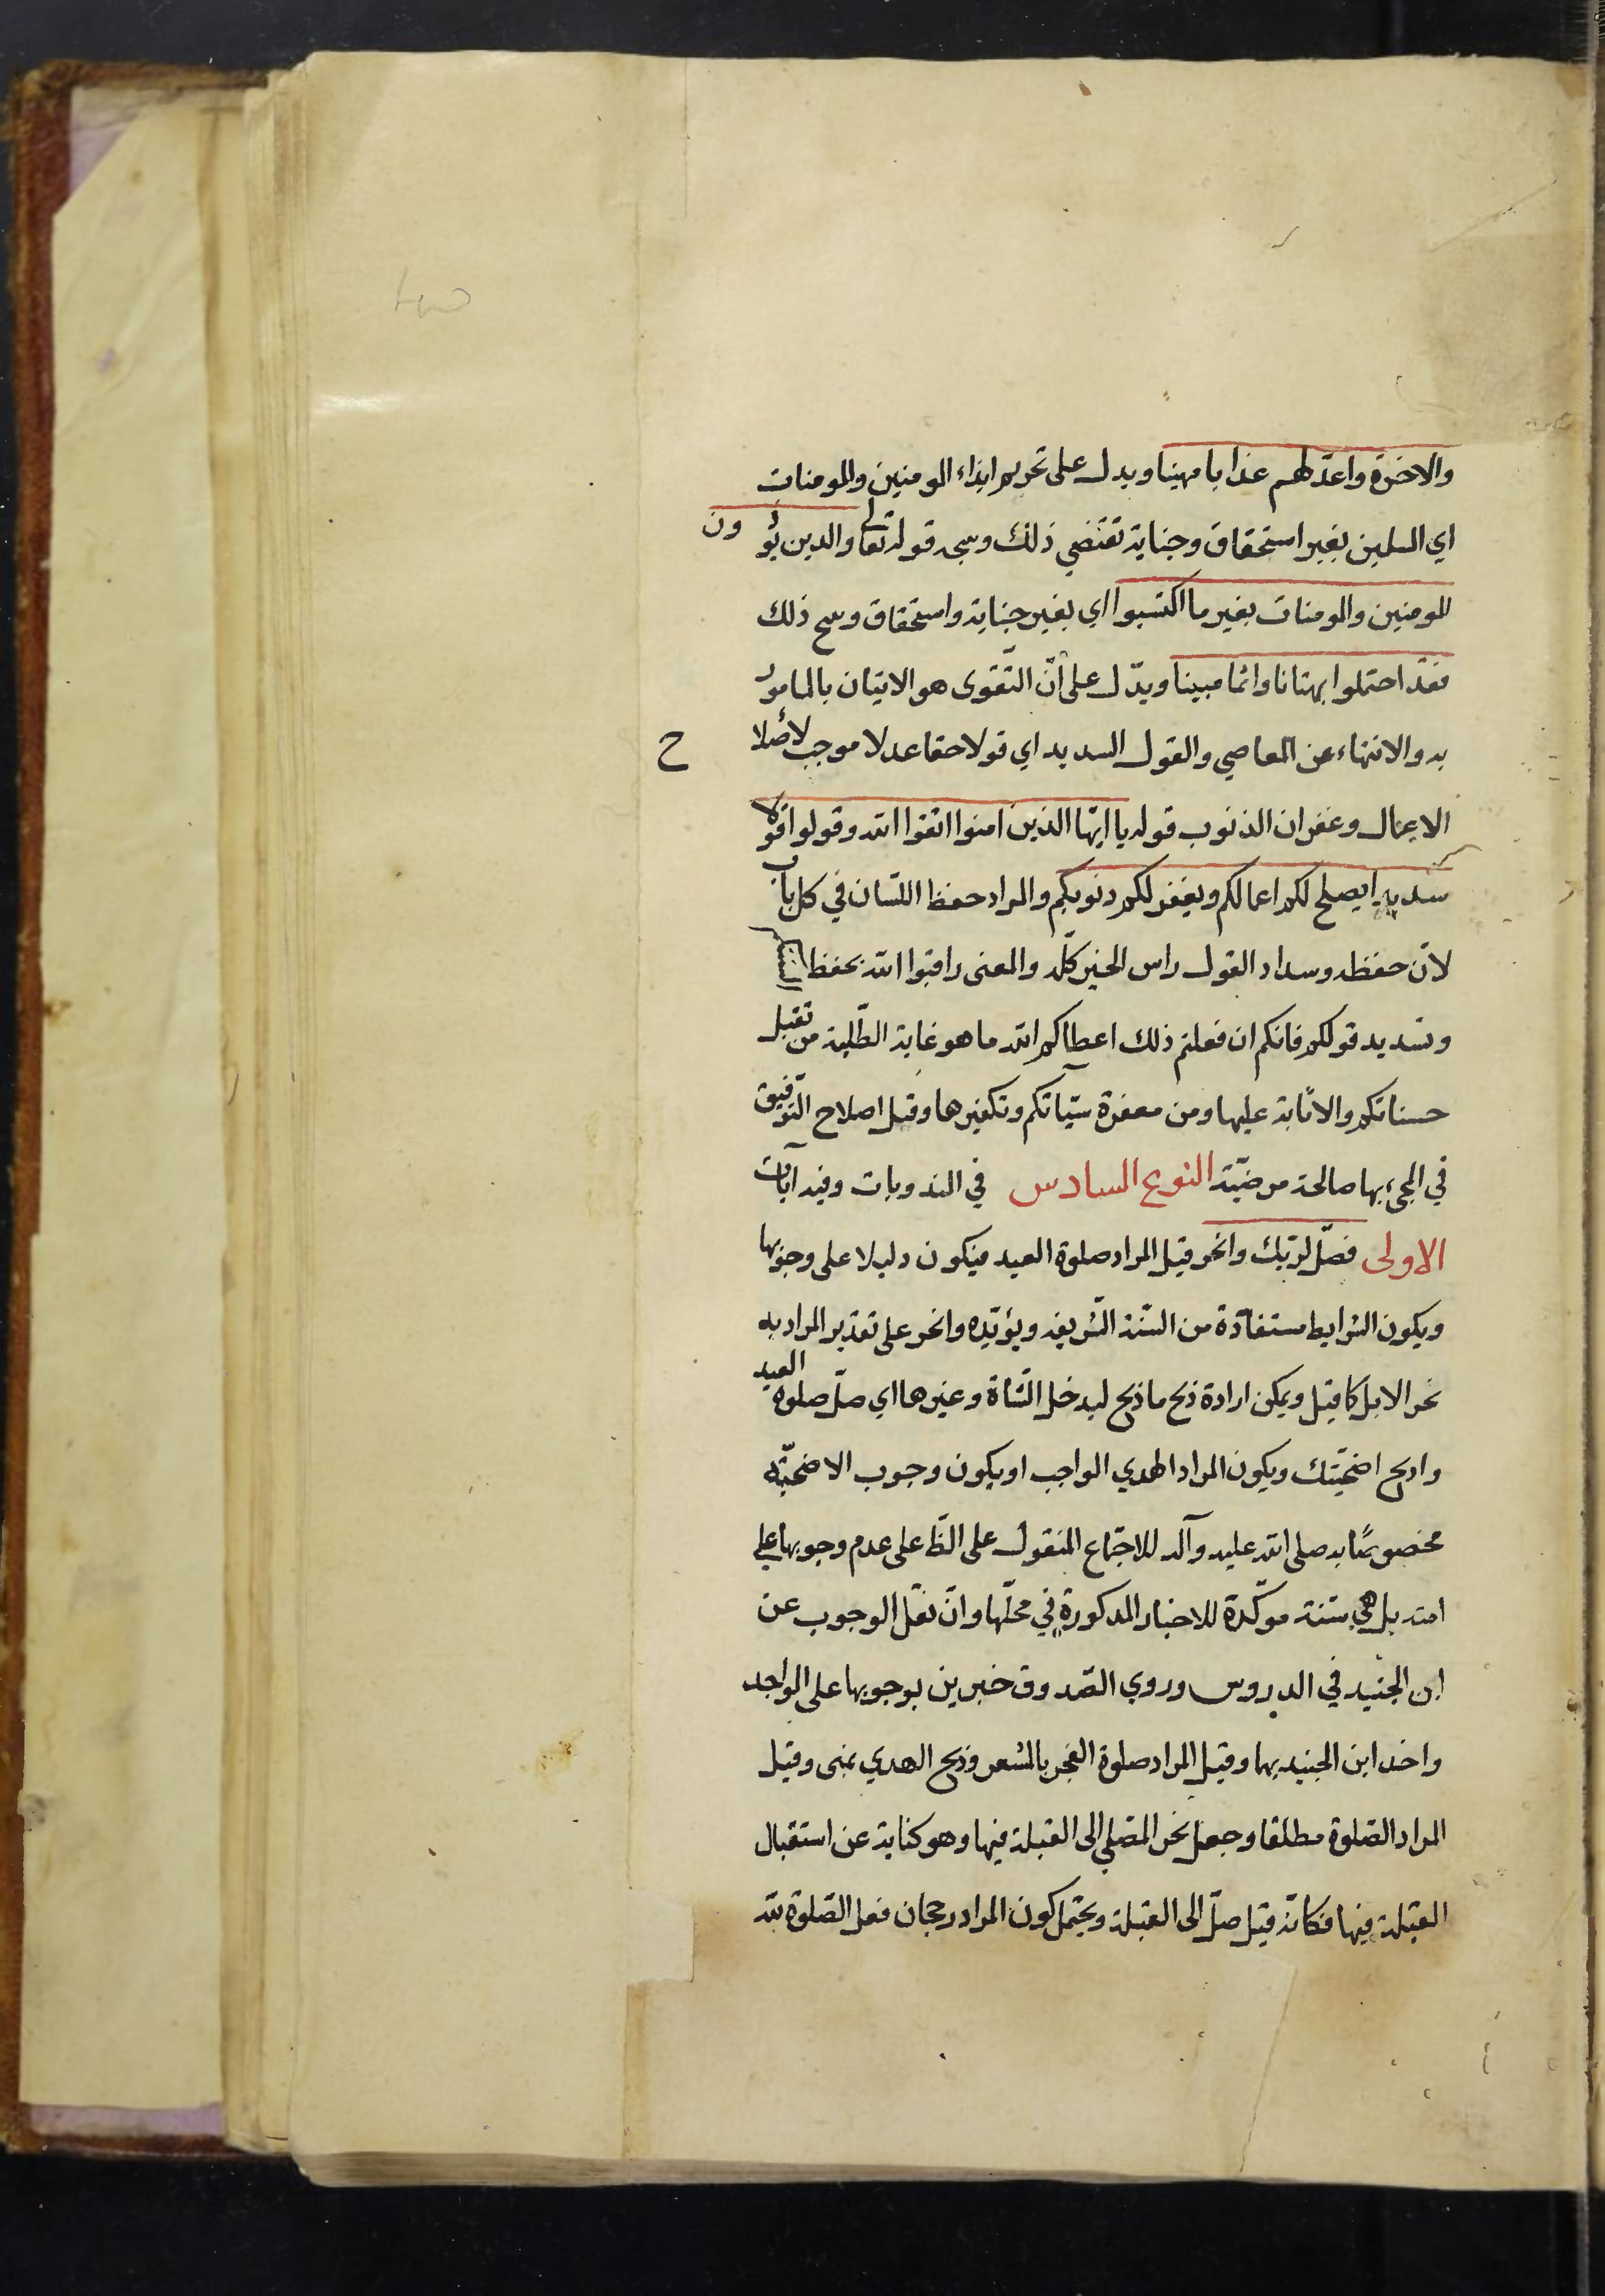 والاخرة واعد لهم عذابا مهينا ويدل على تحريم ايذاء المومنين والمومنات
اي المسلمين بغير استحقاق وجناية تقتضي ذلك وسيجء قوله تعالى والذين يؤذون
المومنين والمومنات بغير ما اكتسبوا اي بغير جناية واستحقاق ومع ذلك
فقد احتملوا بهتانا واثما مبينا ويدّل على أنّ التّقوى هو الاتيان بالمامور
به والانتهاء عن المعاصي والقول السديد اي قولا حقا عدلا موجب لأصلاح
الاعمال وغفران الذنوب قوله يا ايّها الذين امنوا اتقوا الله وقولوا قولا
سديدا يصلح لكم اعمالكم ويغفر لكم ذنوبكم والمراد حفظ اللّسان في كل باب
لانّ حفظه وسداد القول راس الخير كلّه والمعنى راقبوا الله بحفظ السنتكم
وتسديد قولكم فانكم ان فعلتم ذلك اعطاكم الله ما هو غاية الطّلبة من تقبل
حسناتكم والاثابة عليها ومن مغفرة سيّآتكم وتكفيرها وقيل اصلاح التّوفيق
في المجيء بها صالحة مرضيّة النوع السادس في المندوبات وفيه آيات
الاولى فصلّ لربّك وانحر قيل المراد صلوة العيد فيكون دليلا على وجوبها
ويكون الشرايط مستفادة من السنّة الشّريفة ويؤيّده وانحر على تقدير المراد به
نحر الابل كما قيل ويمكن ارادة ذبح ما ذبح ليدخل الشّاة وغيرها اي صلّ صلوة العيد
واذبح اضحيّتك ويكون المراد الهدي الواجب او يكون وجوب الاضحيّة
مخصوصًا به صلى الله عليه وآله للاجماع المنقول على الظّ على عدم وجوبها على
امته بل هي سنة موكّدة للاخبار المذكورة في محلّها وان نقل الوجوب عن
ابن الجنيد في الدروس وروي الصّدوق خبرين بوجوبها على الواجد
واخذ ابن الجنيد بهما وقيل المراد صلوة الفجر بالمشعر وذبح الهدي بمنى وقيل
المراد الصّلوة مطلقا وجعل نحر المصّلي الى القبلة فيها وهو كناية عن استقبال
القبلة فيها فكانّه قيل صلّ الى القبلة ويحتمل كون المراد رجحان فعل الصّلوة لله